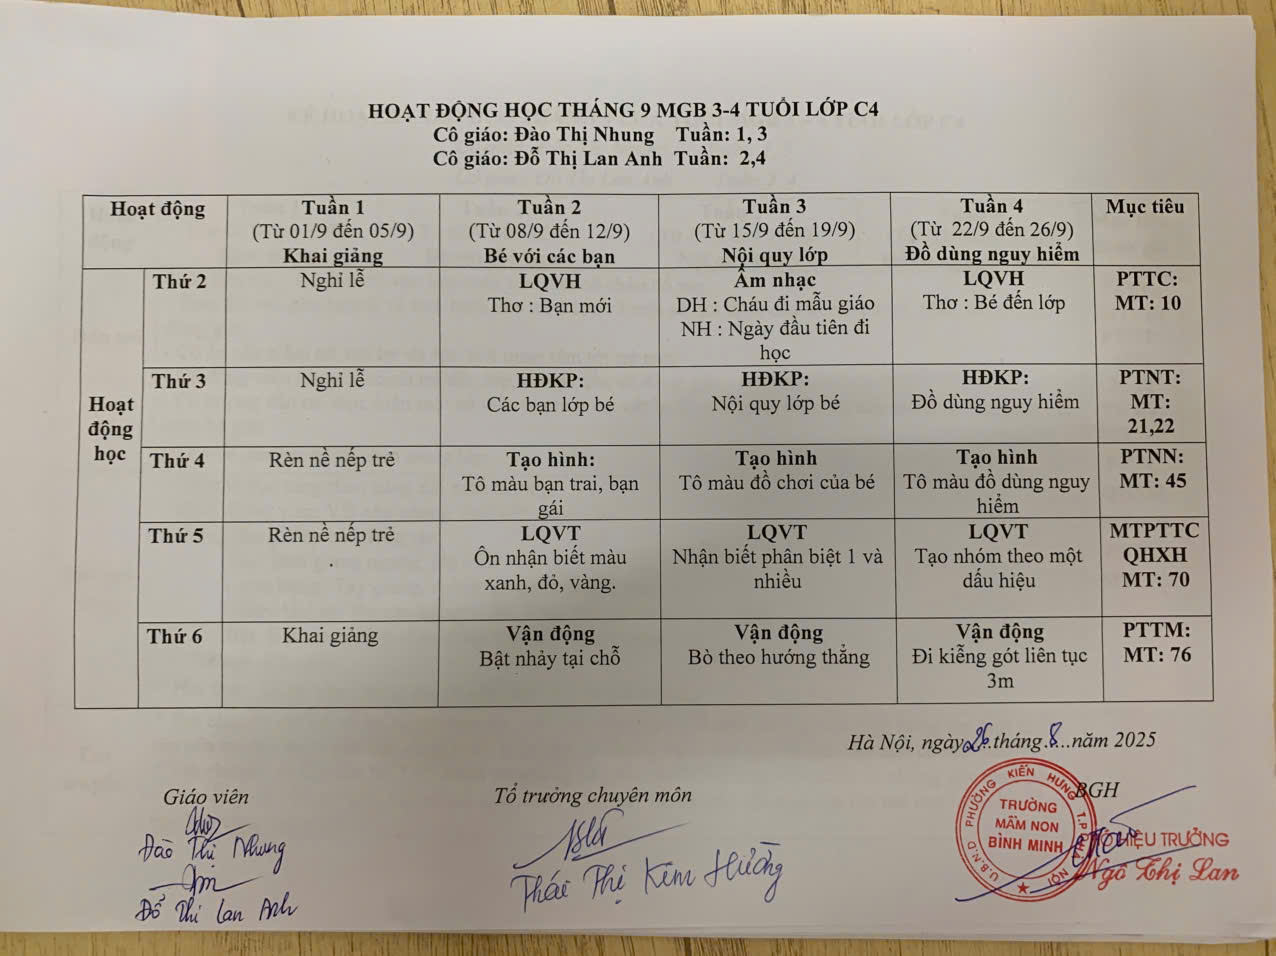 HOẠT ĐỘNG HỌC THÁNG 9 MGB 3-4 TUỔI LỚP C4
Cô giáo: Đào Thị Nhung Tuần: 1, 3
Cô giáo: Đỗ Thị Lan Anh Tuần: 2,4
Hoạt động
Tuần 1
(Từ 01/9 đến 05/9)
Khai giảng
Tuần 2
(Từ 08/9 đến 12/9)
Bé với các bạn
Tuần 3
(Từ 15/9 đến 19/9)
Nội quy lớp
Tuần 4
(Từ 22/9 đến 26/9)
Đồ dùng nguy hiểm
Mục tiêu
Hoạt
động
học
Thứ 2
Nghỉ lễ
LQVH
Thơ : Bạn mới
Âm nhạc
DH : Cháu đi mẫu giáo
NH : Ngày đầu tiên đi
học
LQVH
Thơ : Bé đến lớp
PTTC:
MT: 10
Thứ 3
Nghỉ lễ
HĐKP:
Các bạn lớp bé
HĐKP:
Nội quy lớp bé
HĐKP:
Đồ dùng nguy hiểm
PTNT:
MT:
21,22
Thứ 4
Rèn nề nếp trẻ
Tạo hình:
Tô màu bạn trai, bạn
gái
Tạo hình
Tô màu đồ chơi của bé
Tạo hình
Tô màu đồ dùng nguy
hiểm
PTNN:
MT: 45
Thứ 5
Rèn nề nếp trẻ
LQVT
Ôn nhận biết màu
xanh, đỏ, vàng.
LQVT
Nhận biết phân biệt 1 và
nhiều
LQVT
Tạo nhóm theo một
dấu hiệu
MTPTTC
QHXH
MT: 70
Thứ 6
Khai giảng
Vận động
Bật nhảy tại chỗ
Vận động
Bò theo hướng thẳng
Vận động
Đi kiễng gót liên tục
3m
PTTM:
MT: 76
Hà Nội, ngày 26 tháng 8 năm 2025
Giáo viên
Tổ trưởng chuyên môn
BGH
Đào Thị Nhung
Đỗ Thị Lan Anh
Thái Thị Kim Hường
U.B.N.D PHƯỜNG KIẾN HƯNG T.P HÀ NỘI
TRƯỜNG
MẦM NON
BÌNH MINH
HIỆU TRƯỞNG
Ngô Thị Lan